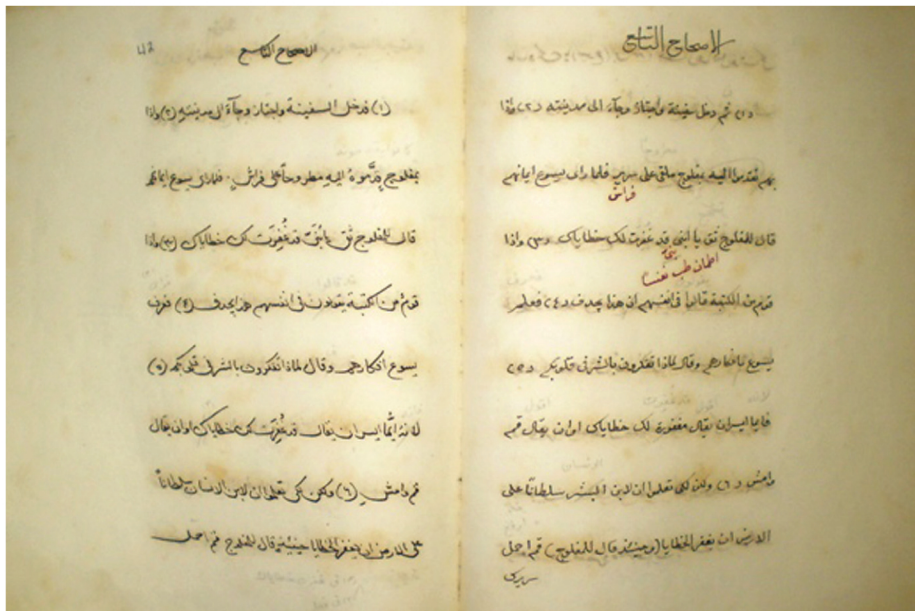 الاصحاح التاسع
(١) ثم دخل سفينة واجتاز وجآء الى مدينته (٢) واذا
بهم تقدموا اليه بمفلوج ملقى على سرير فلما راى يسوع ايمانهم
فراش
قال للمفلوج ثق يا ابني قد غفرت لك خطاياك (٣) واذا
اطمان طب نفسا
قوم من الكتبة قالوا في انفسهم ان هذا يجدف (٤) فعلم
يسوع افكارهم وقال لماذا تفكرون بالشر في قلوبكم (٥)
فايما ايسر ان يقال مغفورة لك خطاياك او ان يقال قم
وامش (٦) ولكن لكي تعلموا ان لابن البشر سلطانًا على
الارض ان يغفر الخطايا (وحينئذ قال للمفلوج) قم احمل
سريرك
42
الاصحاح التاسع
(١) فدخل السفينة واجتاز وجآءَ الى مدينتهِ (٢) واذا
بمفلوج قدَّموهُ اليهِ مطروحاً على فراشٍ. فلما راى يسوع ايمانهم
قال للمفلوج ثق يا بُنيَّ قد غُفِرَت لك خطاياك (٣) واذا
قومٌ من الكتبة يقولون في انفسهم هوذا يجدف (٤) فعرف
يسوع افكارهم وقال لماذا تفكرون بالشر في قلوبكم (٥)
لانهُ ايُّما ايسر ان يقال قد غُفِرَت لك خطاياك او ان يقال
قم وامشِ (٦) ولكن لكي تعلموا ان لابن الانسان سلطاناً
على الارض ان يغفر الخطايا حينئذٍ قال للمفلوج قم احمل